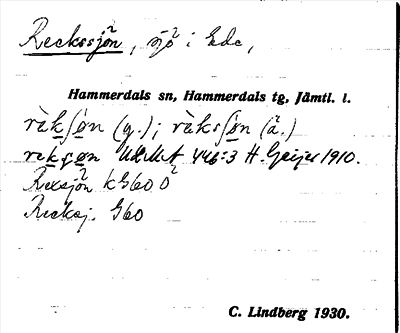 Reckssjön, sjö i Ede,
Hammerdals sn, Hammerdals tg, Jämtl. l.
ràkʃøn (y.); ràksʃøn (ä.)
rekʃøn ULMA 446:3 H. Geijer 1910.
Rexsjön kG60 Ö
Recksj. G60
C. Lindberg 1930.